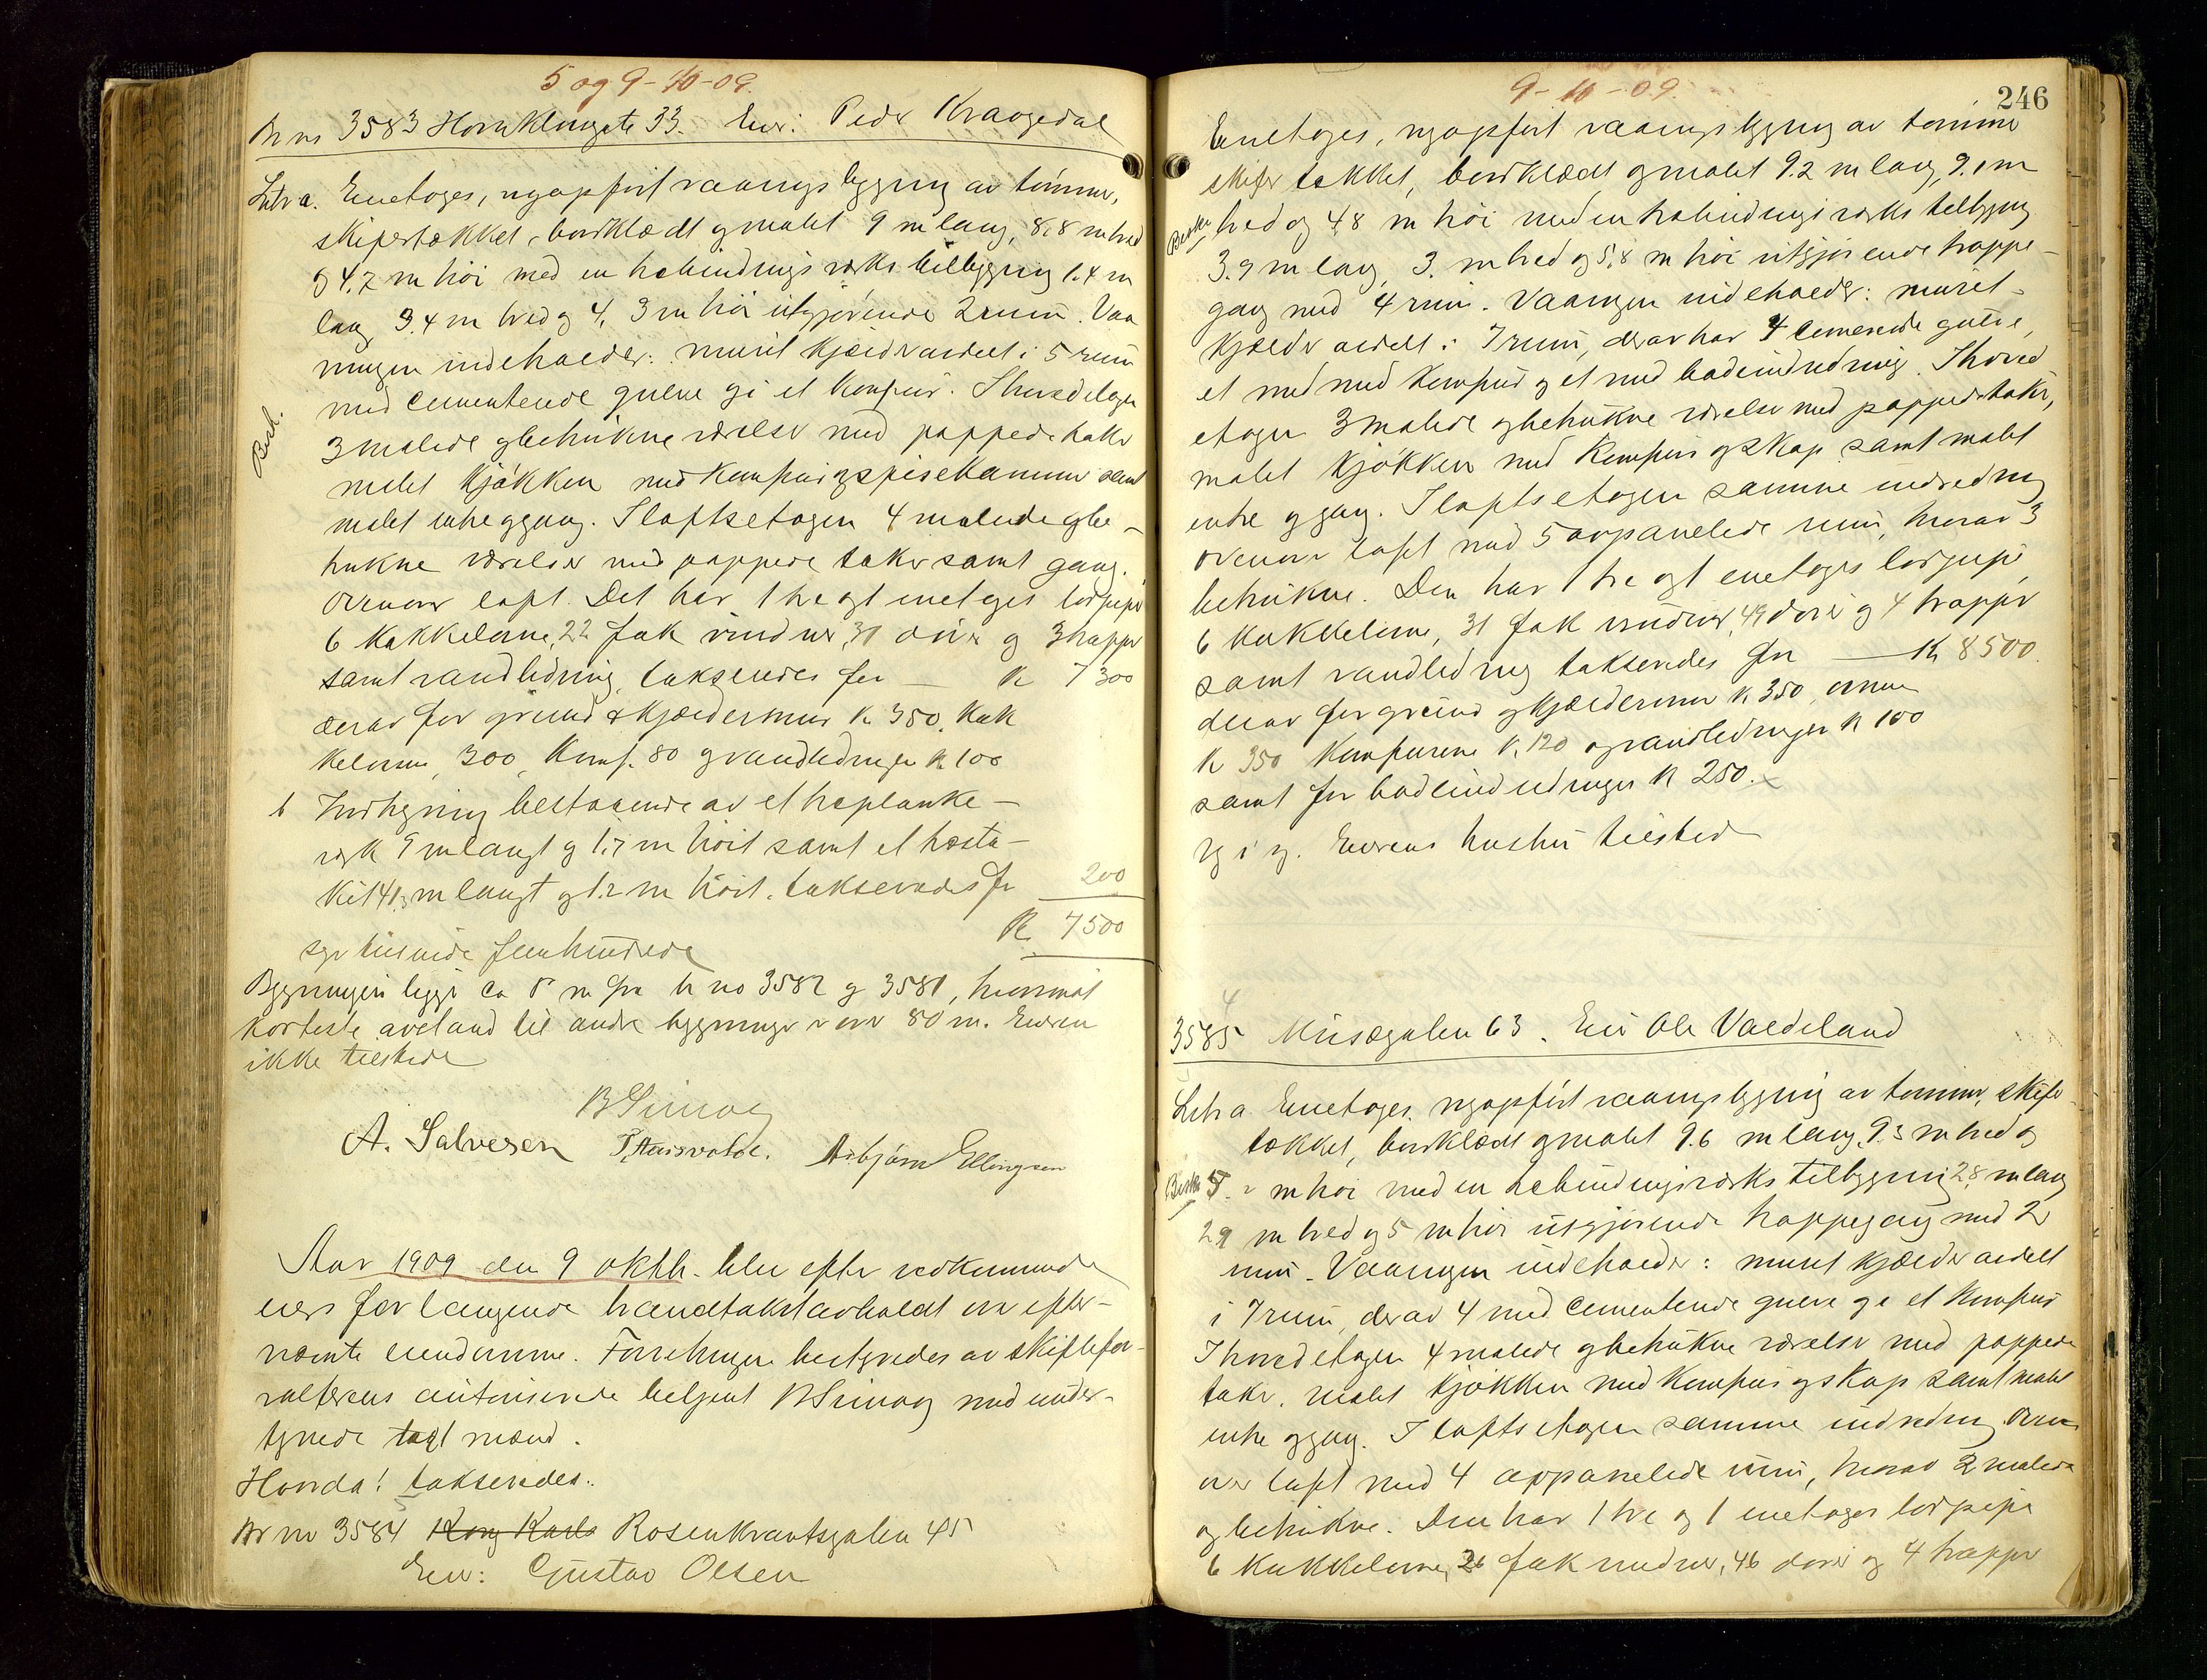 5 og 9-10-09.
Br no 3583 Hornklovesgate 33. Eier: Peder Kraagedal
Litra. Enetages, nyopført vaanings bygning av tømmer,
skifertækket, bordklædt og malet 9 m lang, 8,8 m bred
og 4.7 m høi med en halvbindings verks tilbygning 1.4 m
lang 3.4 m bred og 4,3 m høi utgjørende 2 rum. Vaa
ningen indeholder: muret kjælder avdelt i 5 rum
med cementerede gulve og i et komfur. I hovedetagen
Besk.
3 malede og betrukne værelser med pappede taker
malet kjøkken med komfur og spisekammer samt
malet entre og gang. I loftsetagen 4 malede og be-
trukne værelser med pappede taker samt gang.
Ovenover loft. Det har 1 tre og 1 enetages lorpipe
6 kakkelovne, 22 fak vinduer, 31 dører og 3 trapper
samt vandledning, taksendes for — K 7300
derav for grund & kjældermur K 350. Kak
kelovne, 300, Komf. 80 og vandledningen K 100
b Indhegning bestaaende av et treplanke-
verk 9 m langt og 1.7 m høit samt et hæsta-
kit 41.3 m langt og 1.2 m høit. takseredes for 200
K. 7500
syv tusinde femhundrede
Bygningen ligger ca 5 m fra br no 3582 og 3581, hvorimot
korteste avstand til andre bygninger er over 80 m. Eieren
ikke tilstede
B Simog
A. Salvesen T. Auisvolde. Asbjørn Ellingsen
Aar 1909 den 9 oktbr. blev efter vedkommende
eiers forlangende brandtakst avholdt over efter-
nævnte eiendomme. Forretningen bestyredes av skiftefor-
valterens autoriserede betjent B Simog med under-
tegnede takst mænd.
Hvorda! takseredes:
Br no 3584 Kong Karls Rosenkrantsgaten 45
Eier: Gustav Olsen
9-10-09.
246
Enetages, nyopført vaanings bygning av tømmer
skifer tækket, bordklædt og malet 9.2 m lang, 9.1 m
Beskr
bred og 4,8 m høi med en halvbindings verks tilbygning
3.9 m lang, 3. m bred og 5,8 m høi utgjørende trappe-
gang med 4 rum. Vaaningen indeholder: muret
kjælder avdelt i 7 rum, derav har 4 cementerede gulve,
et med med komfur og et med badeindredning. I hoved
etagen 3 malede og betrukne værelser med pappede taker,
malet kjøkken med komfur og skap samt malet
entre og gang. I loftsetagen samme indredning
ovenover loft med 5 avpanelede rum, hvorav 3
betrukne. Den har 1 tre og 1 enetages lorpipe
6 kakkelovne, 31 fak vinduer, 49 dører og 4 trapper
samt vandledning takseredes for — K 8500.
derav for grund og kjældermur K 350, ovnene
K 350 komfurene K. 120 og vandledningen K 100
samt for badeindredningen K 250.
Eierens hustru tilsted
4
3585 Musægaten 63. Eier Ole Valdeland
Litra Enetages, nyopført vaanings bygning av tømmer, skifer
tækket, bordklædt og malet 9.6 m lang, 9.3 m bred og
Beskr
5. 2 m høi med en halvbindingsverks tilbygning 2,8 m lang
29 m bred og 5 m høi utgjørende trappegang med 2
rum. Vaaningen indeholder: muret kjælder avdelt
i 7 rum, derav 4 med cementerede gulve og et komfur
I hovedetagen 4 malede og betrukne værelser med pappede
taker, malet kjøkken med komfur og skap samt malet
entre og gang. I loftsetagen samme indredning. Oven
over loft med 4 avpanelede rum, hvorav 2 malede
og betrukne. Den har 1 tre og 1 enetages lorpipe
6 kakkelovne, 26 fak vinduer, 46 dører og 4 trapper